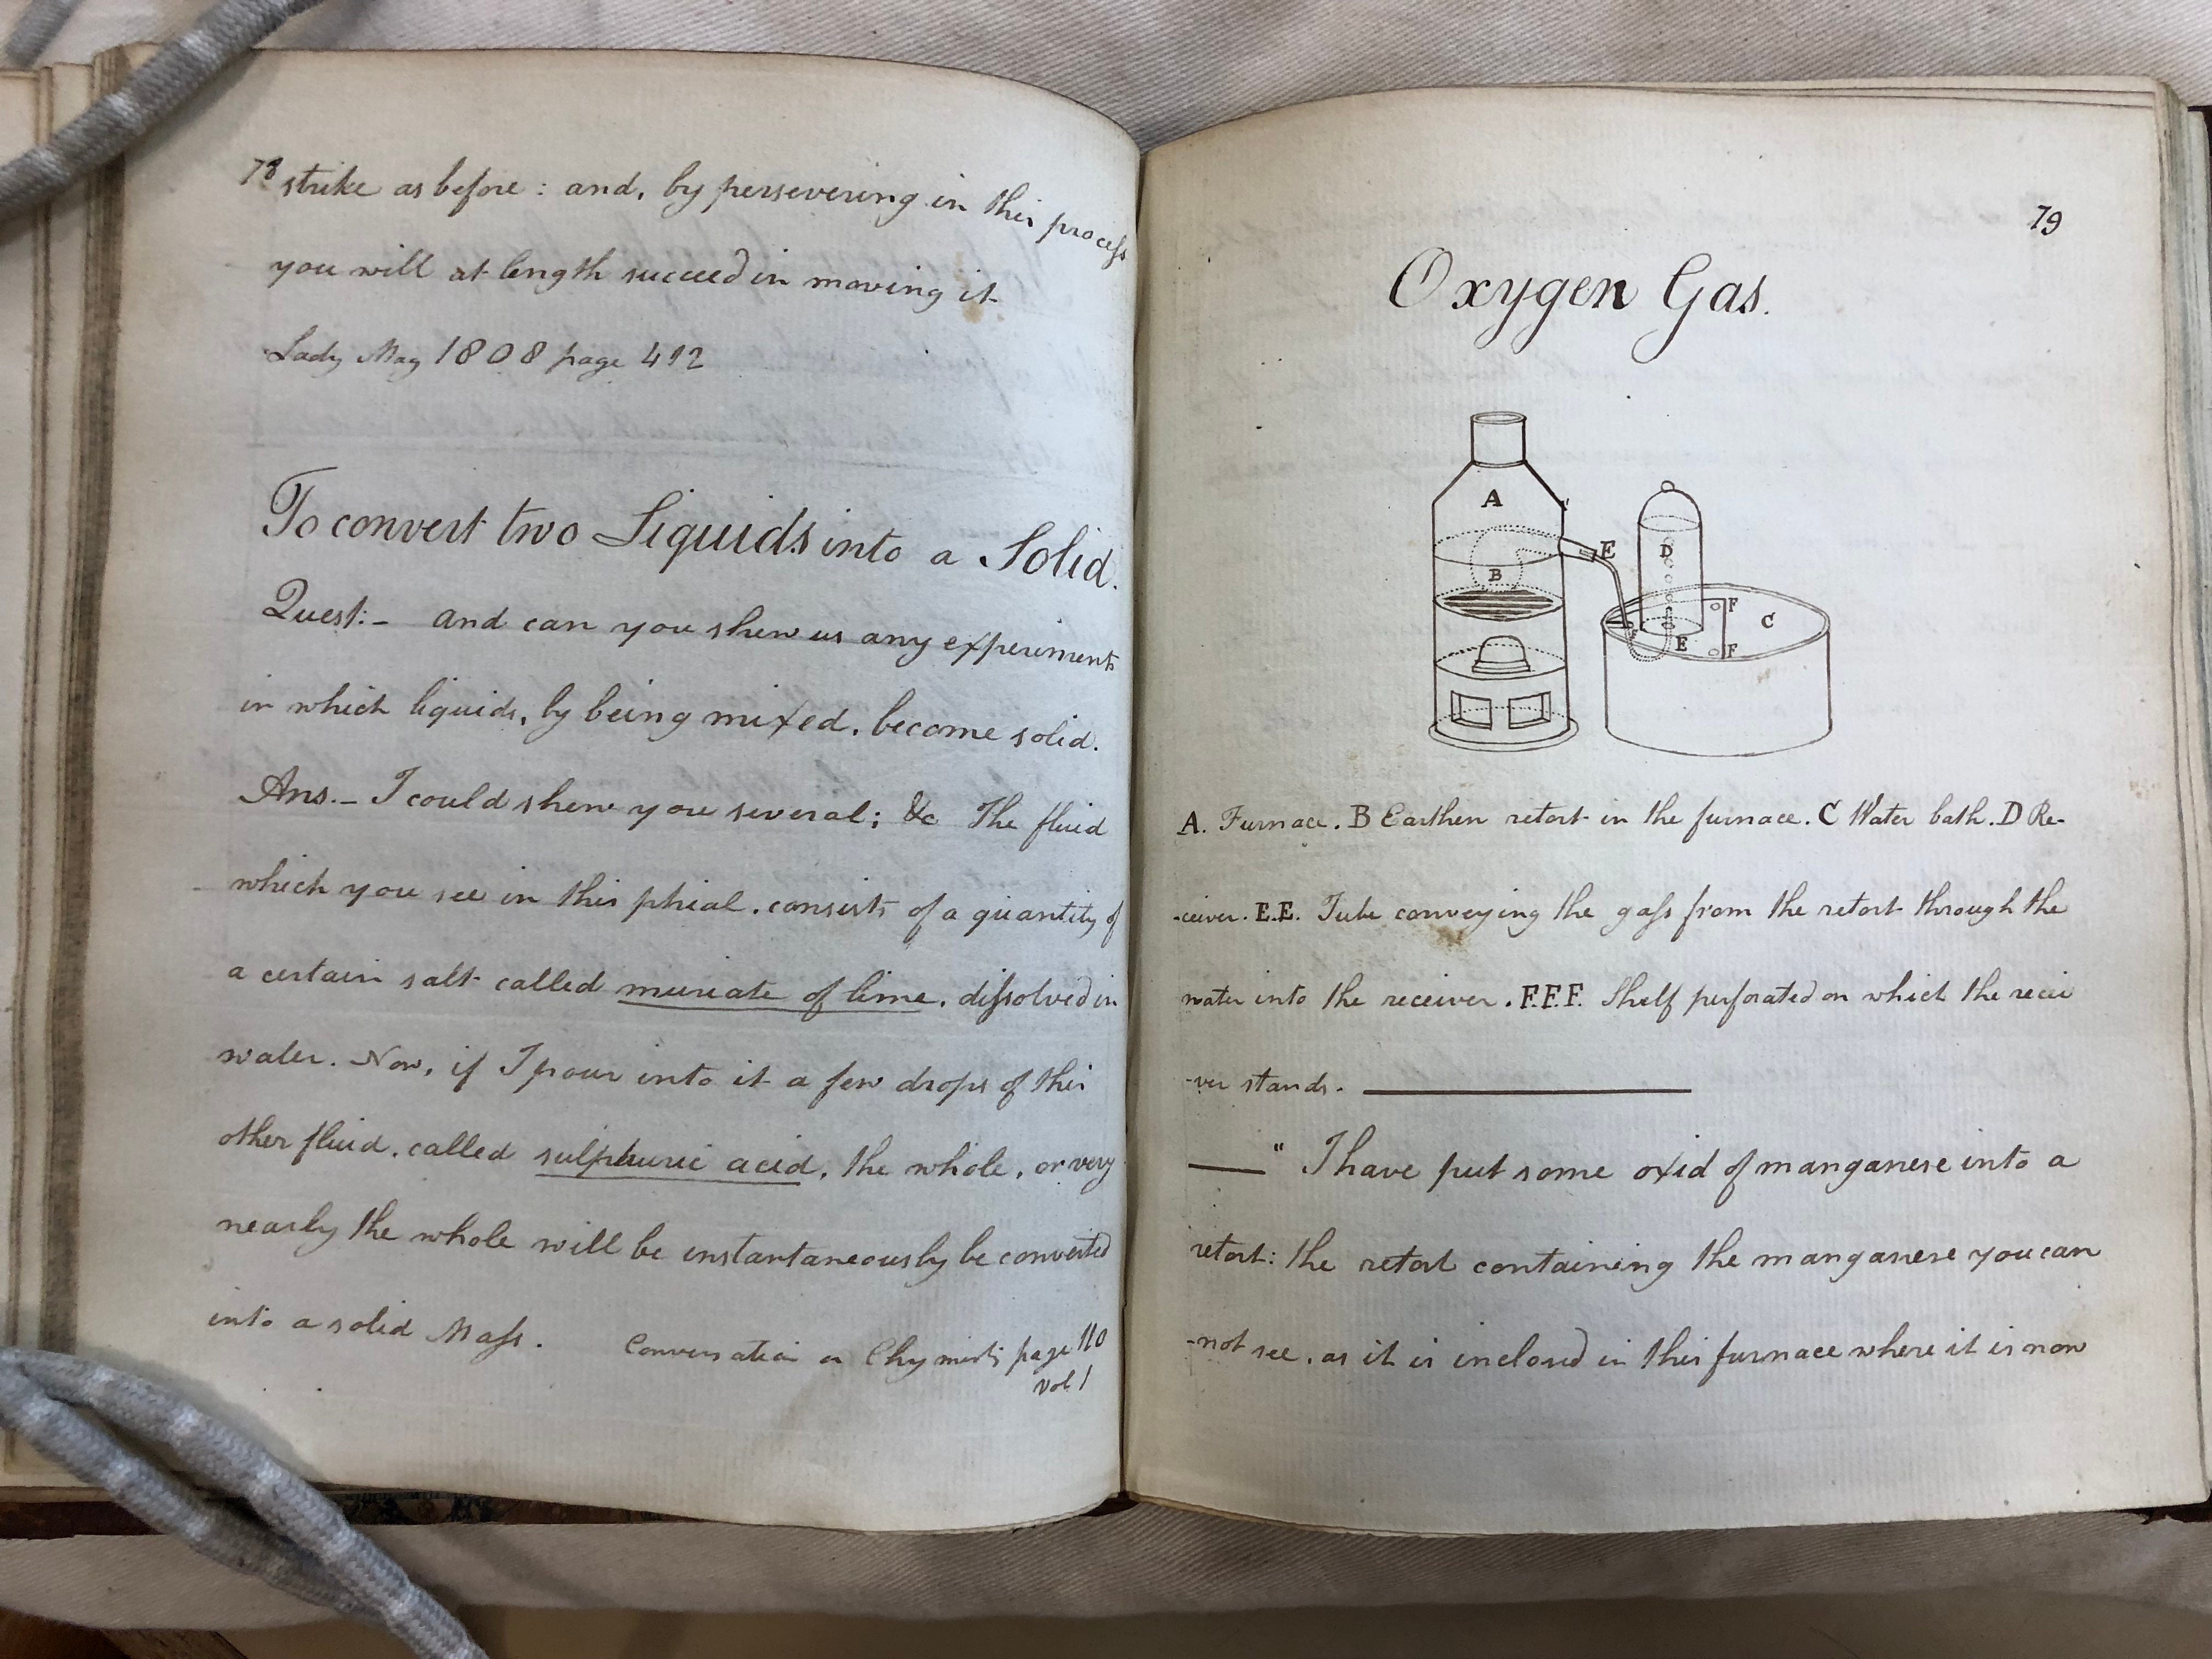 78
strike as before: and, by persevering in this process
you will at length succeed in moving it
Lady Mag 1808 page 492
To convert two Liquids into a Solid.
Quest:- and can you shew us any experiments
in which liquids, by being mixed, become solid.
Ans.- I could shew you several; &c The fluid
which you see in this phial, consists of a quantity of
a certain salt called muriate of lime, dissolved in
water. Now, if I pour into it a few drops of this
other fluid, called sulphuric acid, the whole, or very
nearly the whole will be instantaneously be converted
into a solid Mass. Conversation on Chymist: page 110
vol 1
79
Oxygen Gas.
A
B
E
D
F
C
F
E
F
A. Furnace. B Earthen retort in the furnace. C Water bath. D Re-
-ceiver. E.E. Tube conveying the gass from the retort through the
water into the receiver. F.F.F. Shelf perforated on which the recei
-ver stands.
" I have put some oxid of manganese into a
retort: the retort containing the manganese you can
-not see, as it is inclosed in this furnace where it is now